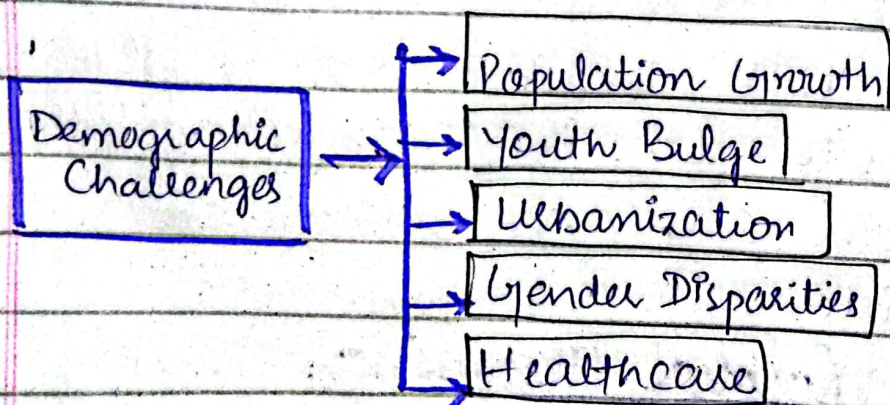 Demographic
Challenges
Population Growth
Youth Bulge
Urbanization
Gender Disparities
Healthcare